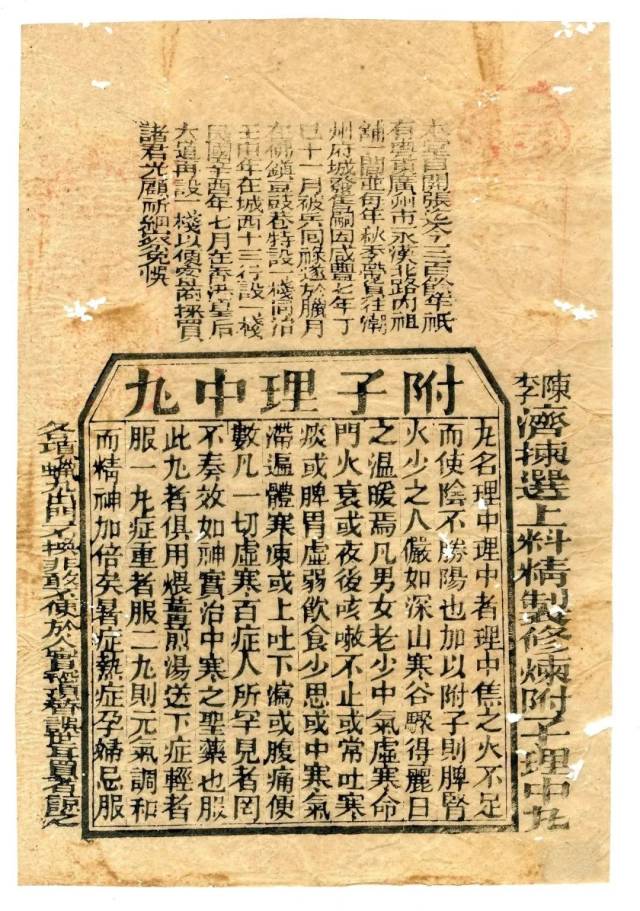 本堂自開張迄今三百餘年祇
有粵東廣州市永漢北路內祖
舖一間並每年秋季帶貨往潮
州府城發售嗣因咸豐七年丁
巳十一月被兵回祿遂於臘月
在佛鎮豆豉巷特設一棧同治
壬申年在城西十三行設一棧
民國辛酉年七月在香港皇后
大道再設一棧以便客商採買
諸君光顧祈細察免悞
陳李濟揀選上料精製修煉附子理中丸
附子理中丸
丸名理中理中者理中焦之火不足
而使陰不勝陽也加以附子則脾腎
火少之人儼如深山寒谷驟得麗日
之溫暖焉凡男女老少中氣虛寒命
門火衰或夜後咳嗽不止或常吐寒
痰或脾胃虛弱飲食少思或中寒氣
滯遍體寒凍或上吐下瀉或腹痛便
數凡一切虛寒百症人所罕見者罔
不奏效如神實治中寒之聖藥也服
此丸者俱用煨薑煎湯送下症輕者
服一丸症重者服二丸則元氣調和
而精神加倍矣暑症熱症孕婦忌服
各項蠟丸出門不換非敢不便於人實恐替誤世耳買者諒之